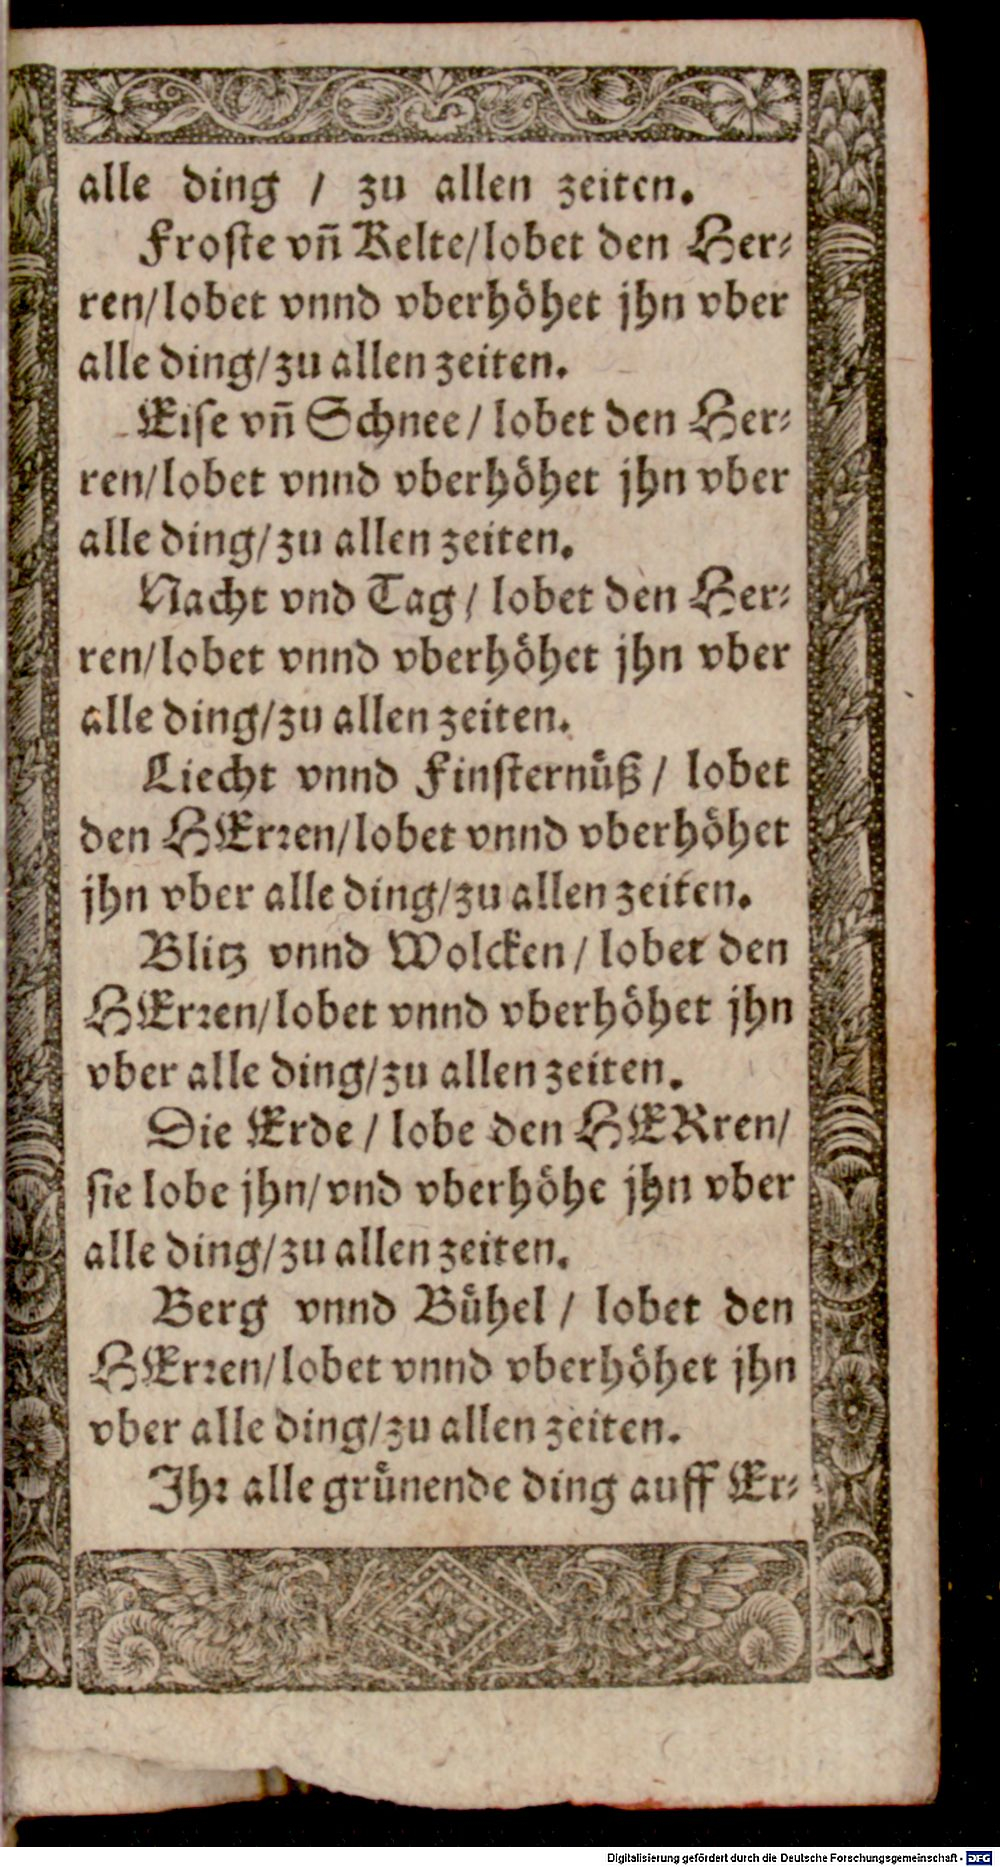 alle ding / zu allen zeiten.
Froste vñ Kelte/lobet den Her⸗
ren/lobet vnnd vberhöhet jhn vber
alle ding/zu allen zeiten.
Eise vñ Schnee / lobet den Her⸗
ren/lobet vnnd vberhöhet jhn vber
alle ding/zu allen zeiten.
Nacht vnd Tag / lobet den Her⸗
ren/lobet vnnd vberhöhet jhn vber
alle ding/zu allen zeiten.
Liecht vnnd Finsternüß / lobet
den HErren/lobet vnnd vberhöhet
jhn vber alle ding/zu allen zeiten.
Blitz vnnd Wolcken / lobet den
HErren/lobet vnnd vberhöhet jhn
vber alle ding/zu allen zeiten.
Die Erde / lobe den HERren/
sie lobe jhn/vnd vberhöhe jhn vber
alle ding/zu allen zeiten.
Berg vnnd Bühel / lobet den
HErren/lobet vnnd vberhöhet jhn
vber alle ding/zu allen zeiten.
Jhr alle grünende ding auff Er⸗
Digitalisierung gefördert durch die Deutsche Forschungsgemeinschaft - DFG